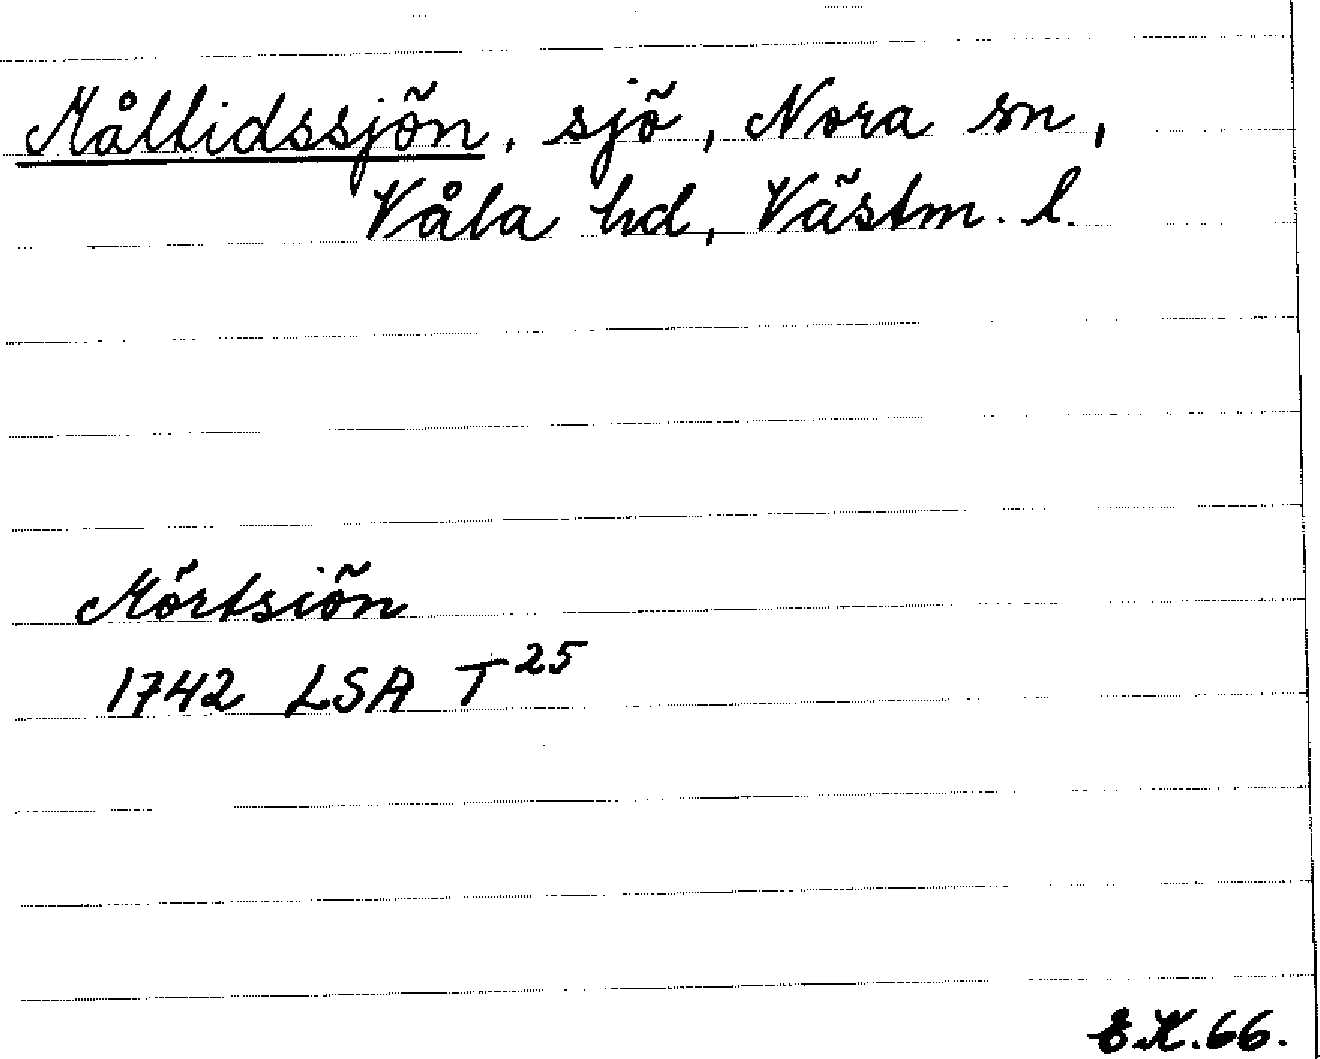 Måltidssjön, sjö, Nora sn,
Våla hd, Västm. l.
Mörtsiön
1742 LSA T 25
E.K. 66.